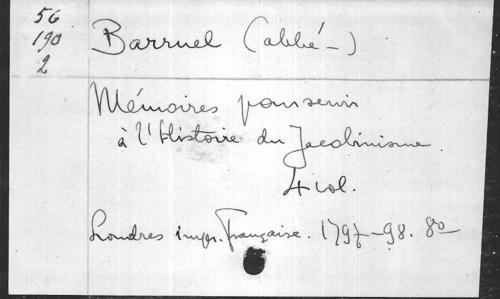 56
190
2
Barruel (abbé –)
Mémoires pour servir
à l'Histoire du Jacobinisme.
4 vol.
Londres impr. Française. 1797–98. 8º